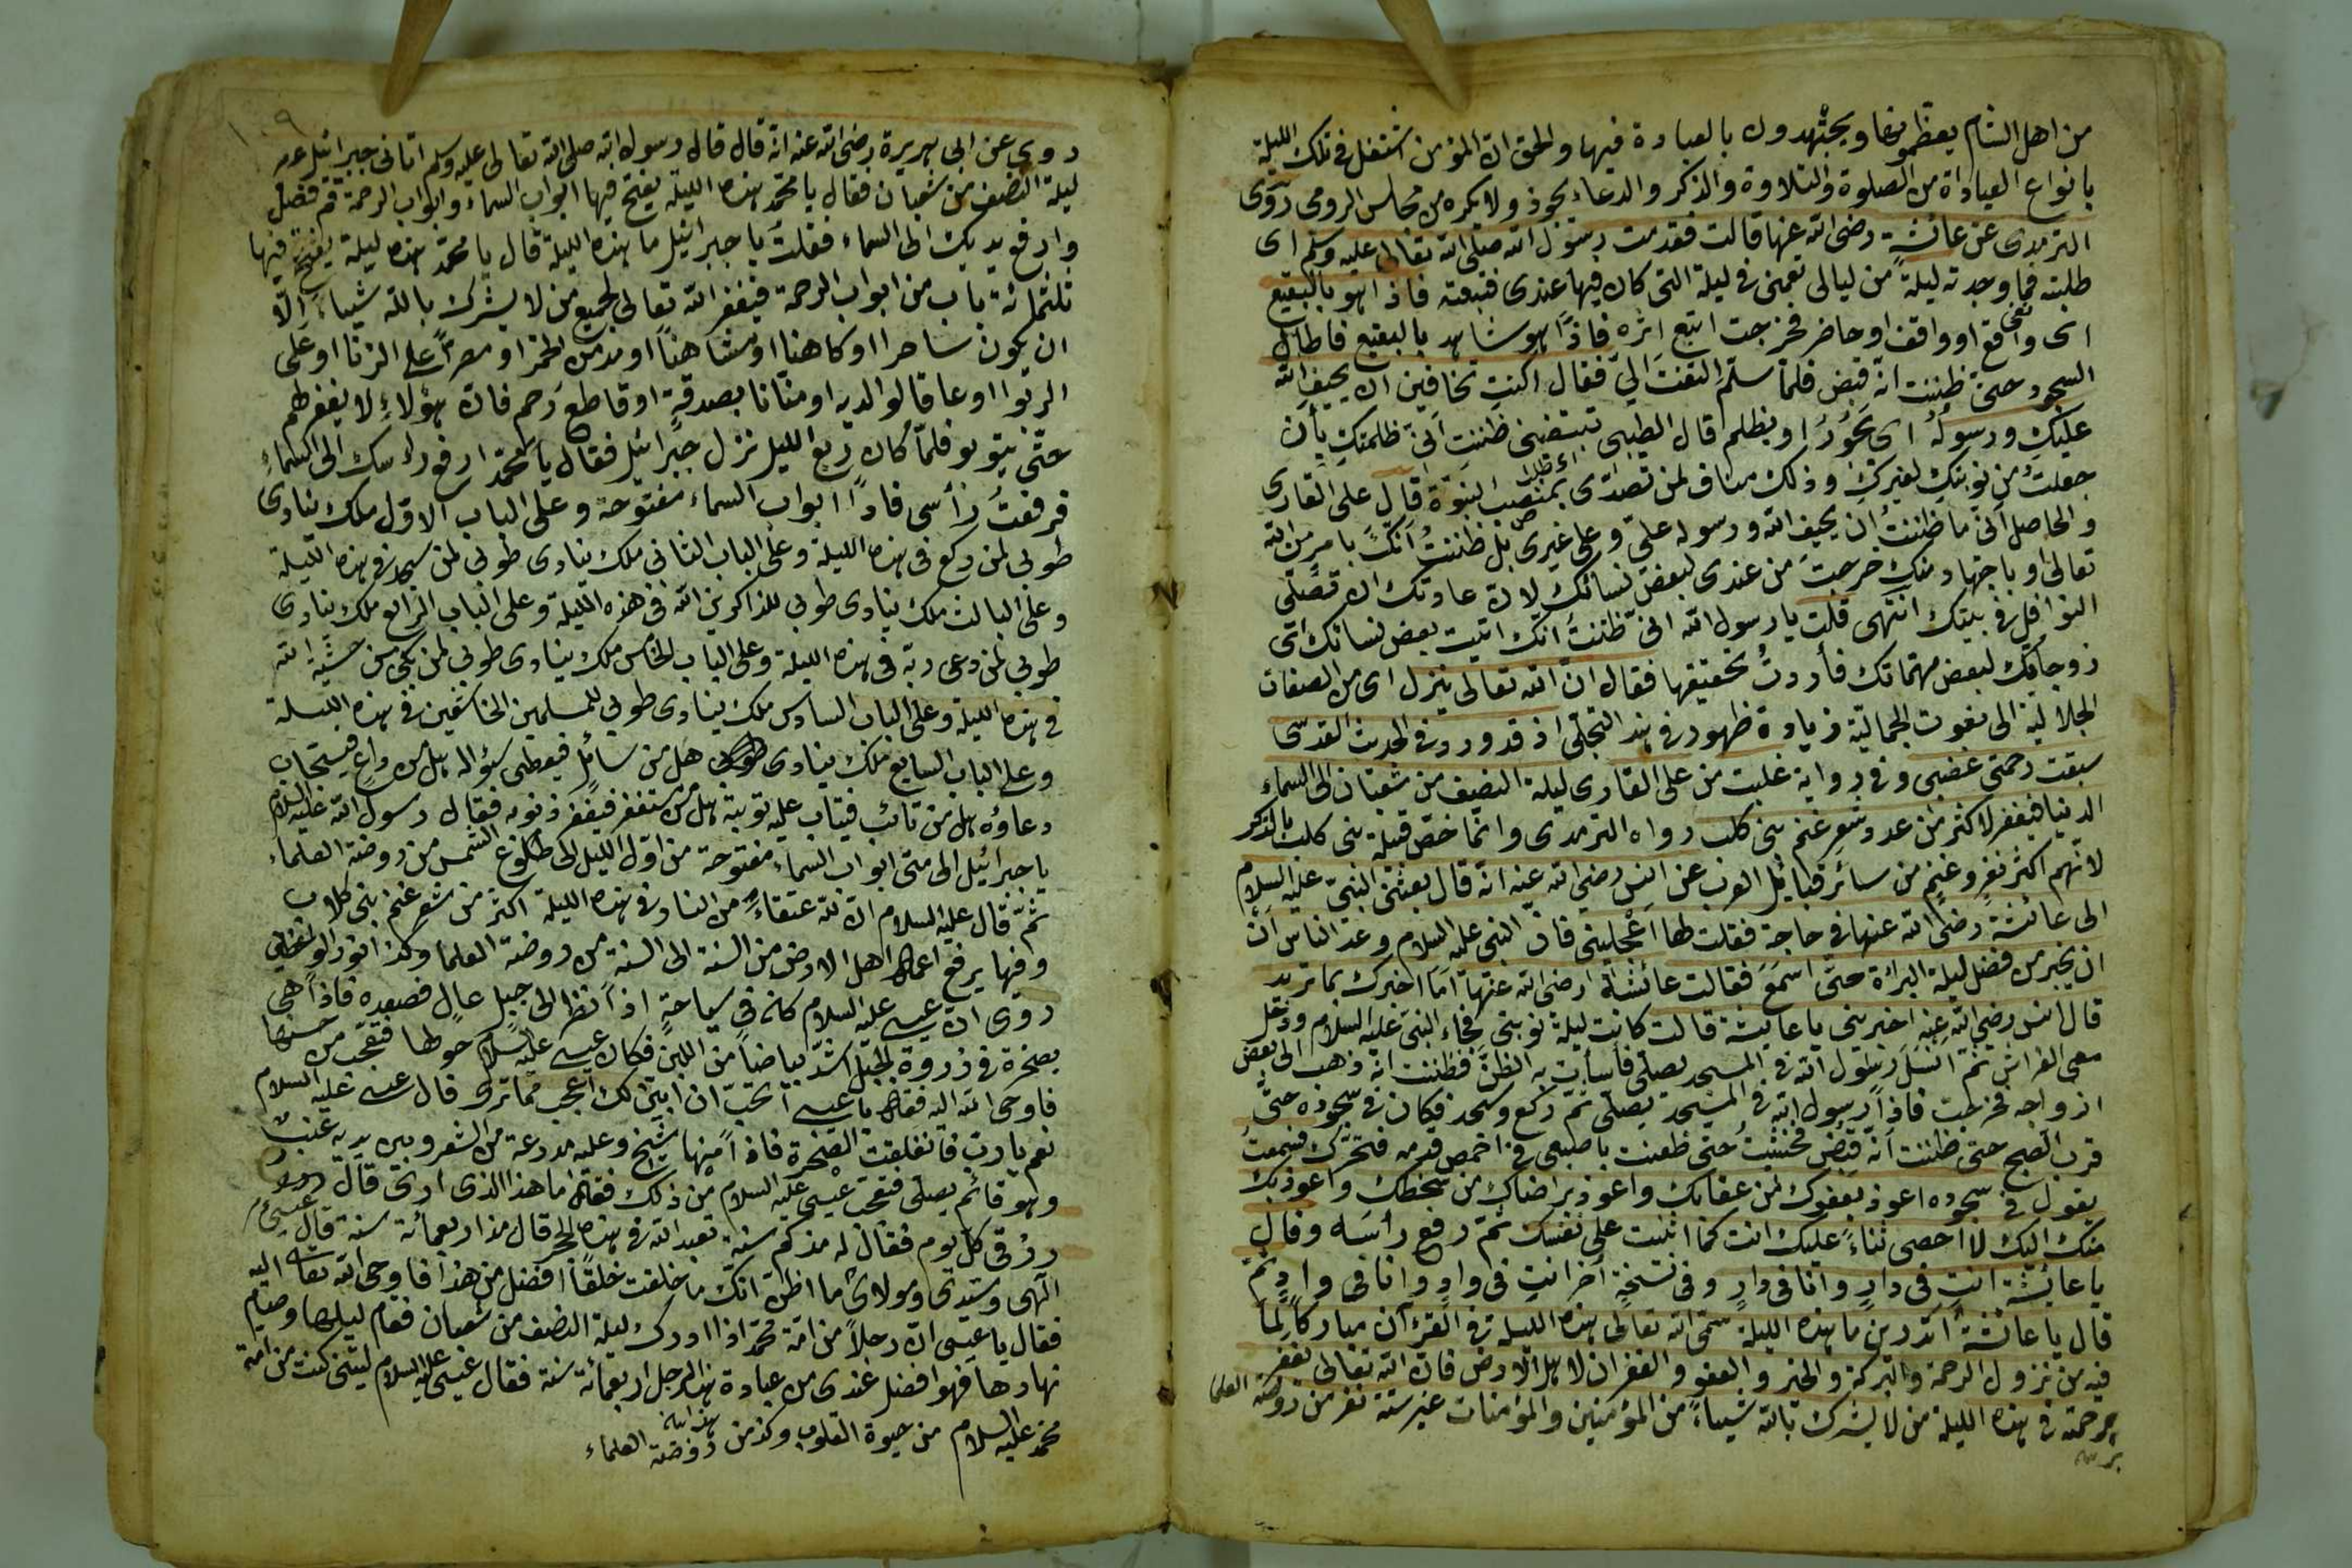 من اهل الشام يعظمونها ويجتهدون بالعبادة فيها والحق ان المؤمن اشتغل فى تلك الليلة
بانواع العباداة من الصلوة والتلاوة والذكر والدعاء يجوذ ولا يكره من مجالس الرومى روى
الترمدى عن عائشة رضى الله عنها قالت فقدمت رسول الله صلى الله تعالى عليه وسلم اى
طلبته فما وجدته ليلة من ليالى تعنى فى ليلة التى كان فيها عندى فتبعته فاذا هو بالبقيع
اى واقع او واقف او حاضر فخرجت اتبع اثره فاذا هو شاهد بالبقيع فاطال
السجود حتى ظننت انه قبض فلما سلم التفت الى فقال اكنت تخافين ان يحيف الله
عليك ورسوله اى يجور او يظلم قال الطيبى تبتغينى ظننت انى ظلمتك بأن
جعلت من نوبتك لغيرك وذلك مناف لمن تصدى بمنصب النبوة قال على القارى
والحاصل انى ما ظننت ان يحيف الله ورسوله على وعلى غيرى بل ظننت انك بامر من الله
تعالى او باجتهاد منك خرجت من عندى لبعض نسائك لان عادتك ان تصلى
النوافل فى بيتك انتهى قلت يا رسول الله انى ظننت انك اتيت بعض نسائك اى
زوجاتك لبعض مهماتك فأردت تحقيقها فقال ان الله تعالى ينزل اى من الصفات
الجلالية الى نعوت الجمالية زيادة ظهور فى هذا التجلى اذ قد ورد فى الحديث القدسى
سبقت رحمتى غضبى وفى رواية غلبت من على القارى ليلة النصف من شعبان الى السماء
الدنيا فيغفر لاكثر من عدد شعر غنم بنى كلب رواه الترمدى وانما خص قبيلة بنى كلب بالذكر
لانهم اكثر نفر وغنم من سائر قبائل العرب عن انس رضى الله عنه انه قال بعثنى النبى عليه السلام
الى عائشة رضى الله عنها فى حاجة فقلت لها اعجلينى فان النبى عليه السلام وعد الناس ان
ان يخبر من فضل ليلة البرائة حتى اسمع فقالت عائشة رضى الله عنها اما اخبرك بما تريد
قال انس رضى الله عنه اخبرينى يا عايشة قالت كانت ليلة نوبتى فجاء النبى عليه السلام ودخل
معى الفراش ثم انسل رسول الله فى المسجد يصلى فأسأت به الظن فظننت انه ذهب الى بعض
ازواجه فخرجت فاذا رسول الله فى المسجد يصلى ثم ركع وسجد فكان فى سجوده حتى
قرب الصبح حتى ظننت انه قبض فخشيت حتى طعنت باصبعى فى اخمص قدمه فتحرك فسمعت
يقول فى سجوده اعوذ بعفوك من عقابك واعوذ برضاك من سخطك واعوذ بك
منك اليك لا احصى ثناء عليك انت كما اثنيت على نفسك ثم رفع رأسه وقال
يا عائشة انت فى دار وانا فى دار وفى نسخة أخر انت فى واد وانا فى واد ثم
قال يا عائشة أتدرين ما هذه الليلة سمى الله تعالى هذه الليلة فى القرآن مباركا لما
فيه من نزول الرحمة والبركة والخير والعفو والغفران لاهل الارض فان الله تعالى يغفر
برحمته فى هذه الليلة من لا يشرك بالله شيأ من المؤمنين والمؤمنات غير ستة نفر من روضة العلما
١٠٩
روى عن ابى هريرة رضى الله عنه انه قال قال رسول الله صلى الله تعالى عليه وسلم اتانى جبرائيل عم
ليلة النصف من شعبان فقال يا محمد هذه الليلة يفتح فيها ابواب السماء وابواب الرحمة قم فصل
وارفع يديك الى السماء فقلت يا جبرائيل ما هذه الليلة قال يا محمد هذه ليلة يفتح فيها
ثلثمائة باب من ابواب الرحمة فيغفر الله تعالى لجميع من لا يشرك بالله شيأ الا
ان يكون ساحرا او كاهنا او مشاحنا او مدمن لخمر او مصرا على الزنا او على
الربوا او عاقا لوالديه او منانا بصدقة او قاطع رحم فان هؤلاء لا يغفر لهم
حتى يتوبو فلما كان ربع الليل نزل جبرائيل فقال يا محمد ارفع رأسك الى السماء
فرفعت رأسى فاذا ابواب السماء مفتوحة وعلى الباب الاول ملك ينادى
طوبى لمن ركع فى هذه الليلة وعلى الباب الثانى ملك ينادى طوبى لمن سجد فى هذه الليلة
وعلى الثالث ملك ينادى طوبى للذاكرين الله فى هذه الليلة وعلى الباب الرابع ملك ينادى
طوبى لمن دعى ربه فى هذه الليلة وعلى الباب الخامس ملك ينادى طوبى لمن بكى من خشية الله
فى هذه الليلة وعلى الباب السادس ملك ينادى طوبى للمسلمين الخاشعين فى هذه الليلة
وعلى الباب السابع ملك ينادى هل من سائل فيعطى سؤاله هل من داع فيستجاب
دعاؤه هل من تائب فيتاب عليه توبته هل من مستغفر فيغفر ذنوبه فقال رسول الله عليه السلام
يا جبرائيل الى متى ابواب السماء مفتوحة من اول الليل الى طلوع الشمس من روضة العلماء
ثم قال عليه السلام ان لله عتقاء من النار فى هذه الليلة اكثر من شعر غنم بنى كلاب
وفيها يرفع اعمال اهل الارض من السنة الى السنة من روضة العلما وكذا
روى ان عيسى عليه السلام كان فى سياحة اذا نظر الى جبل عال فصعده فاذا هى
بصخرة فى ذروة الجبل اشد بياضا من اللبن فكان عيسى عليه السلام حولها فتعجب من حسنها
فاوحى الله اليه فقال يا عيسى أتحب ان ابين لك اعجب مما ترى قال عيسى عليه السلام
نعم يا رب فانفلقت الصخرة فاذا منها شيخ وعليه مدرعة من الشعر وبين يديه عنب
وهو قائم يصلى فتعجب عيسى عليه السلام من ذلك فقال ما هذا الذى ارى قال
رزقى كل يوم فقال له مذ كم سنة تعبد الله فى هذه الحجر قال مذ اربعمائة سنة قال عيسى
الهى وسيدى ومولاى ما اظن انك ما خلقت خلقا افضل من هذا فاوحى الله تعالى اليه
فقال يا عيسى ان رجلا من امة محمد اذا ادرك ليلة النصف من شعبان فقام ليلها وصيام
نهارها فهو افضل عندى من عبادة هذا الرجل اربعمائة سنة فقال عيسى عليه السلام ليتنى كنت من امة
محمد عليه السلام من حيوة القلوب وكذ من روضة العلماء